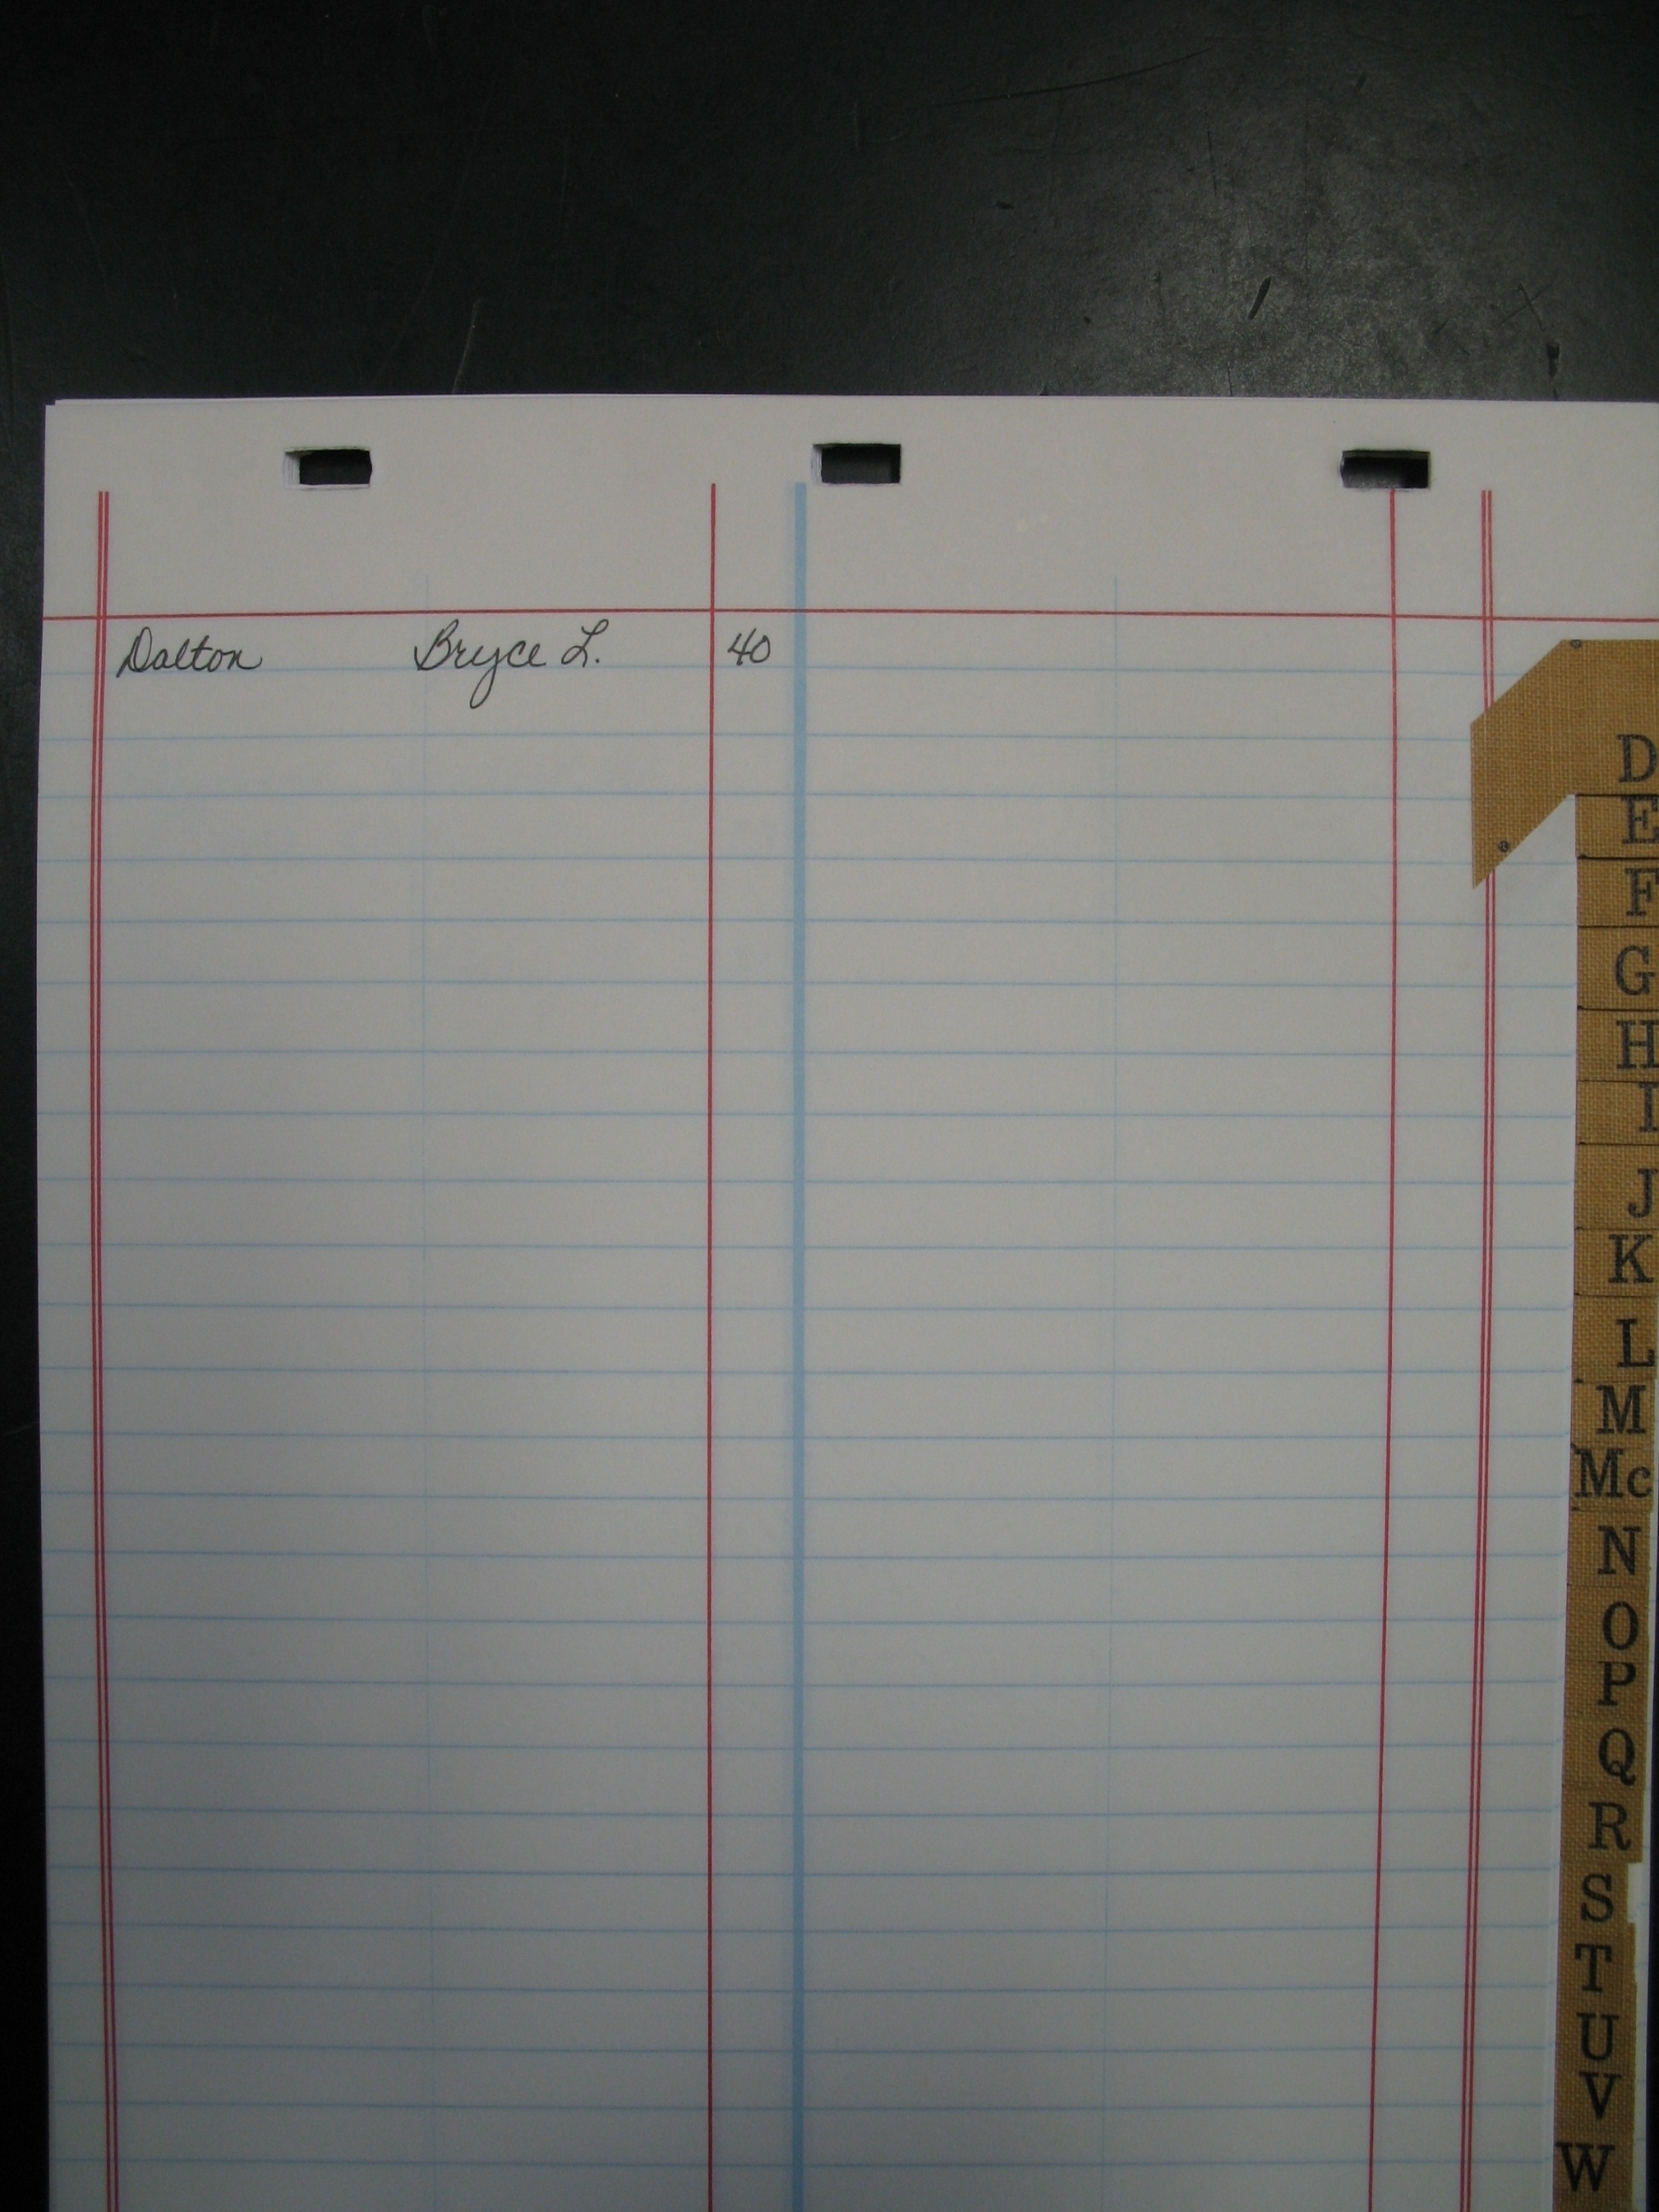 Dalton Bryce L. 40
D
E
F
G
H
I
J
K
L
M
Mc
N
O
P
Q
R
S
T
U
V
W